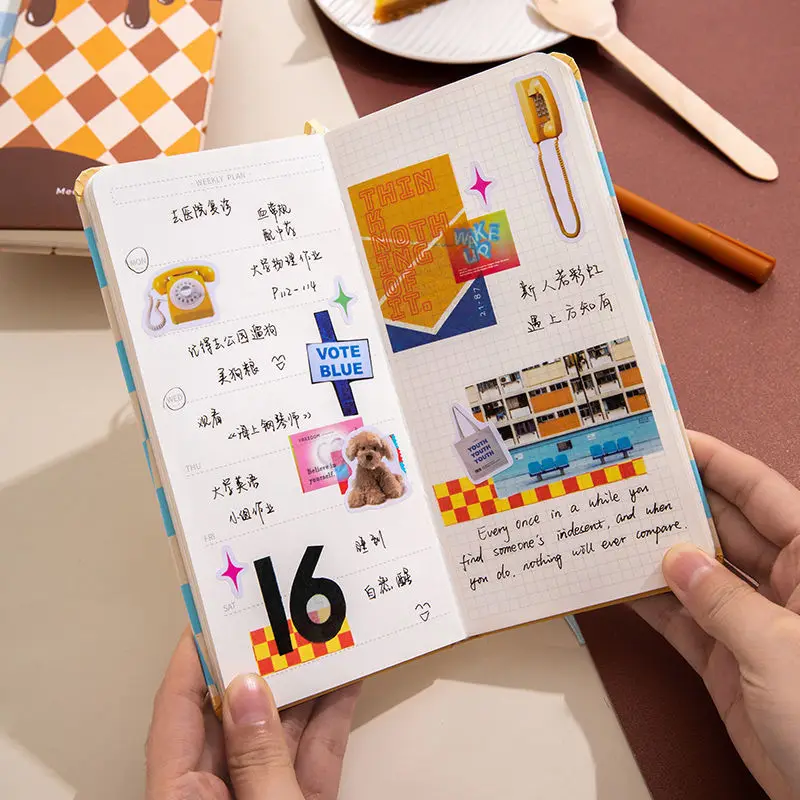 WEEKLY PLAN
去医院复诊 血常规
配中药
MON
大学物理作业
P112-114
记得去公园遛狗
买狗粮
VOTE
BLUE
WED
观看《海上钢琴师》
FREEDOM
Believe in
yourself.
THU
大学英语
小组作业
FRI
睡到
自然醒
SAT
16
THIN
K
NOTH
ING
OF
IT.
WAKE
UP
21-87
斯人若彩虹
遇上方知有
YOUTH
YOUTH
YOUTH
Every once in a while you
find someone's indesent, and when
you do, nothing will ever compare.